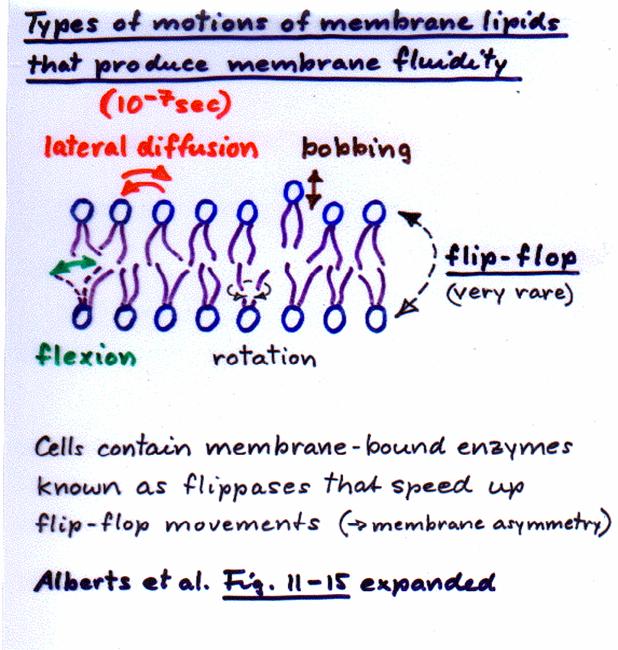 Types of motions of membrane lipids
that produce membrane fluidity
(10⁻⁷sec)
lateral diffusion
bobbing
flip-flop
(very rare)
flexion
rotation
Cells contain membrane-bound enzymes
known as flippases that speed up
flip-flop movements (→membrane asymmetry)
Alberts et al. Fig. 11-15 expanded